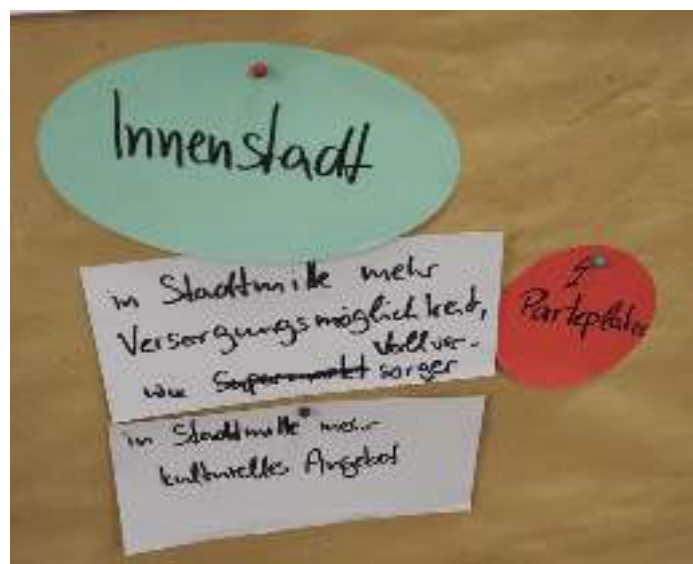 Innenstadt
in Stadtmitte mehr
Versorgungsmöglichkeit,
Vollver-
wie Supermarkt sorger
Parkplätze
in Stadtmitte mehr
kulturelles Angebot